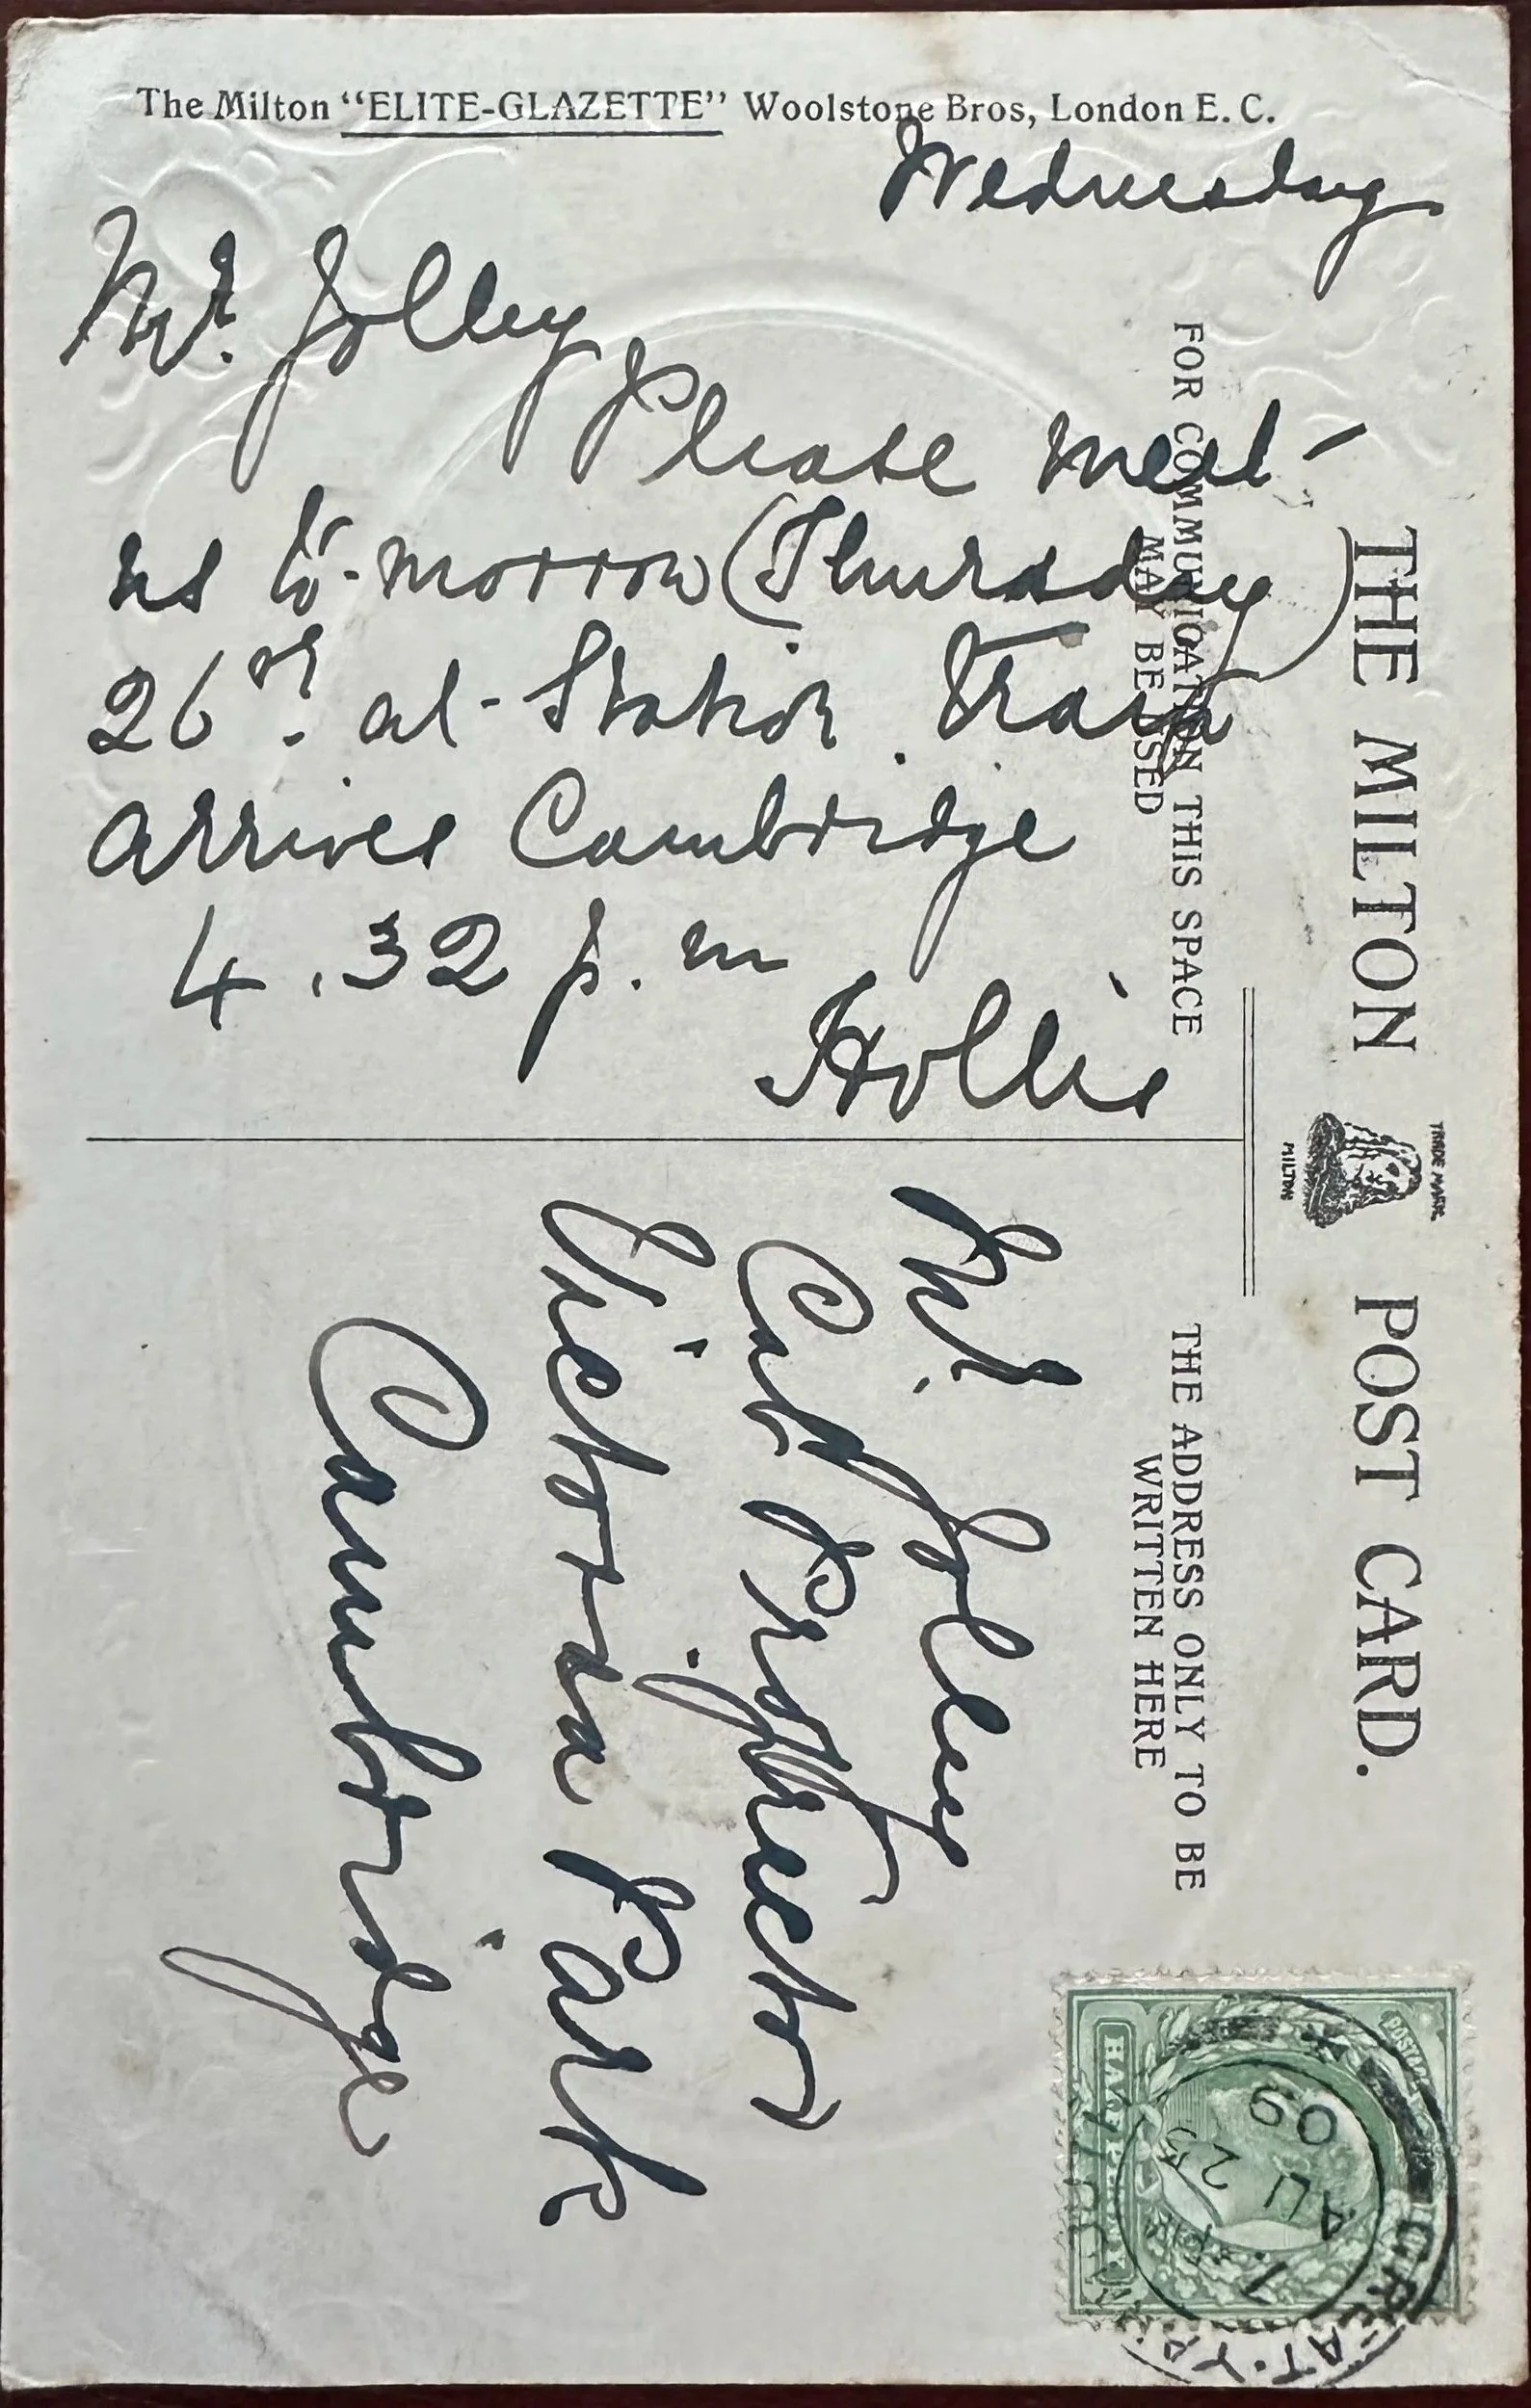 The Milton "ELITE-GLAZETTE" Woolstone Bros, London E. C.
Wednesday
Mr. Jolley
Please meet
us to-morrow (Thursday)
26th. at Station. Train
arrives Cambridge
4.32 p.m
Hollis
THE MILTON POST CARD.
TRADE MARK
MILTON
FOR COMMUNICATION THIS SPACE
MAY BE USED
THE ADDRESS ONLY TO BE
WRITTEN HERE
Mr. Jolley
Cab Proprietor
Victoria Park
Cambridge
POSTAGE
HALFPENNY
GREAT. YA
AU 25
09